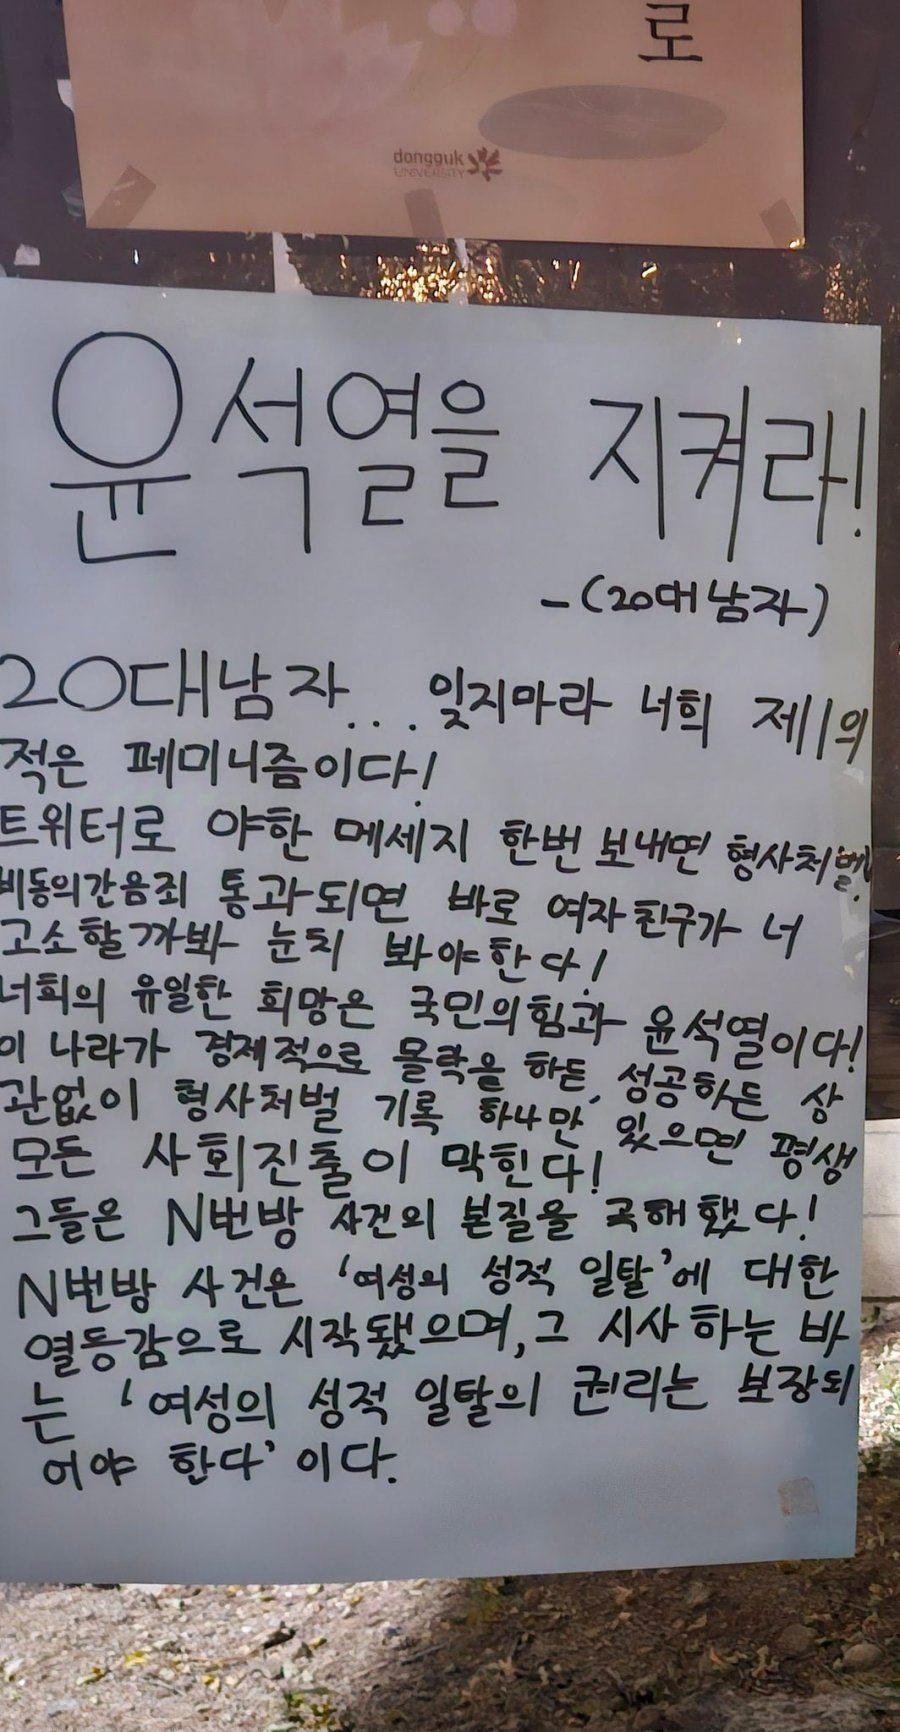 로
dongguk
UNIVERSITY
윤석열을 지켜라!
-(20대 남자)
20대남자... 잊지마라 너희 제1의
적은 페미니즘이다!
트위터로 야한 메세지 한번 보내면 형사처벌!
비동의간음죄 통과되면 바로 여자친구가 너
고소할까봐 눈치 봐야한다!
너희의 유일한 희망은 국민의힘과 윤석열이다!
이 나라가 경제적으로 몰락을 하든, 성공하든 상
관없이 형사처벌 기록 하나만 있으면 평생
모든 사회진출이 막힌다!
그들은 N번방 사건의 본질을 곡해했다!
N번방 사건은 '여성의 성적 일탈'에 대한
열등감으로 시작됐으며, 그 시사하는 바
는 '여성의 성적 일탈의 권리는 보장되
어야 한다'이다.